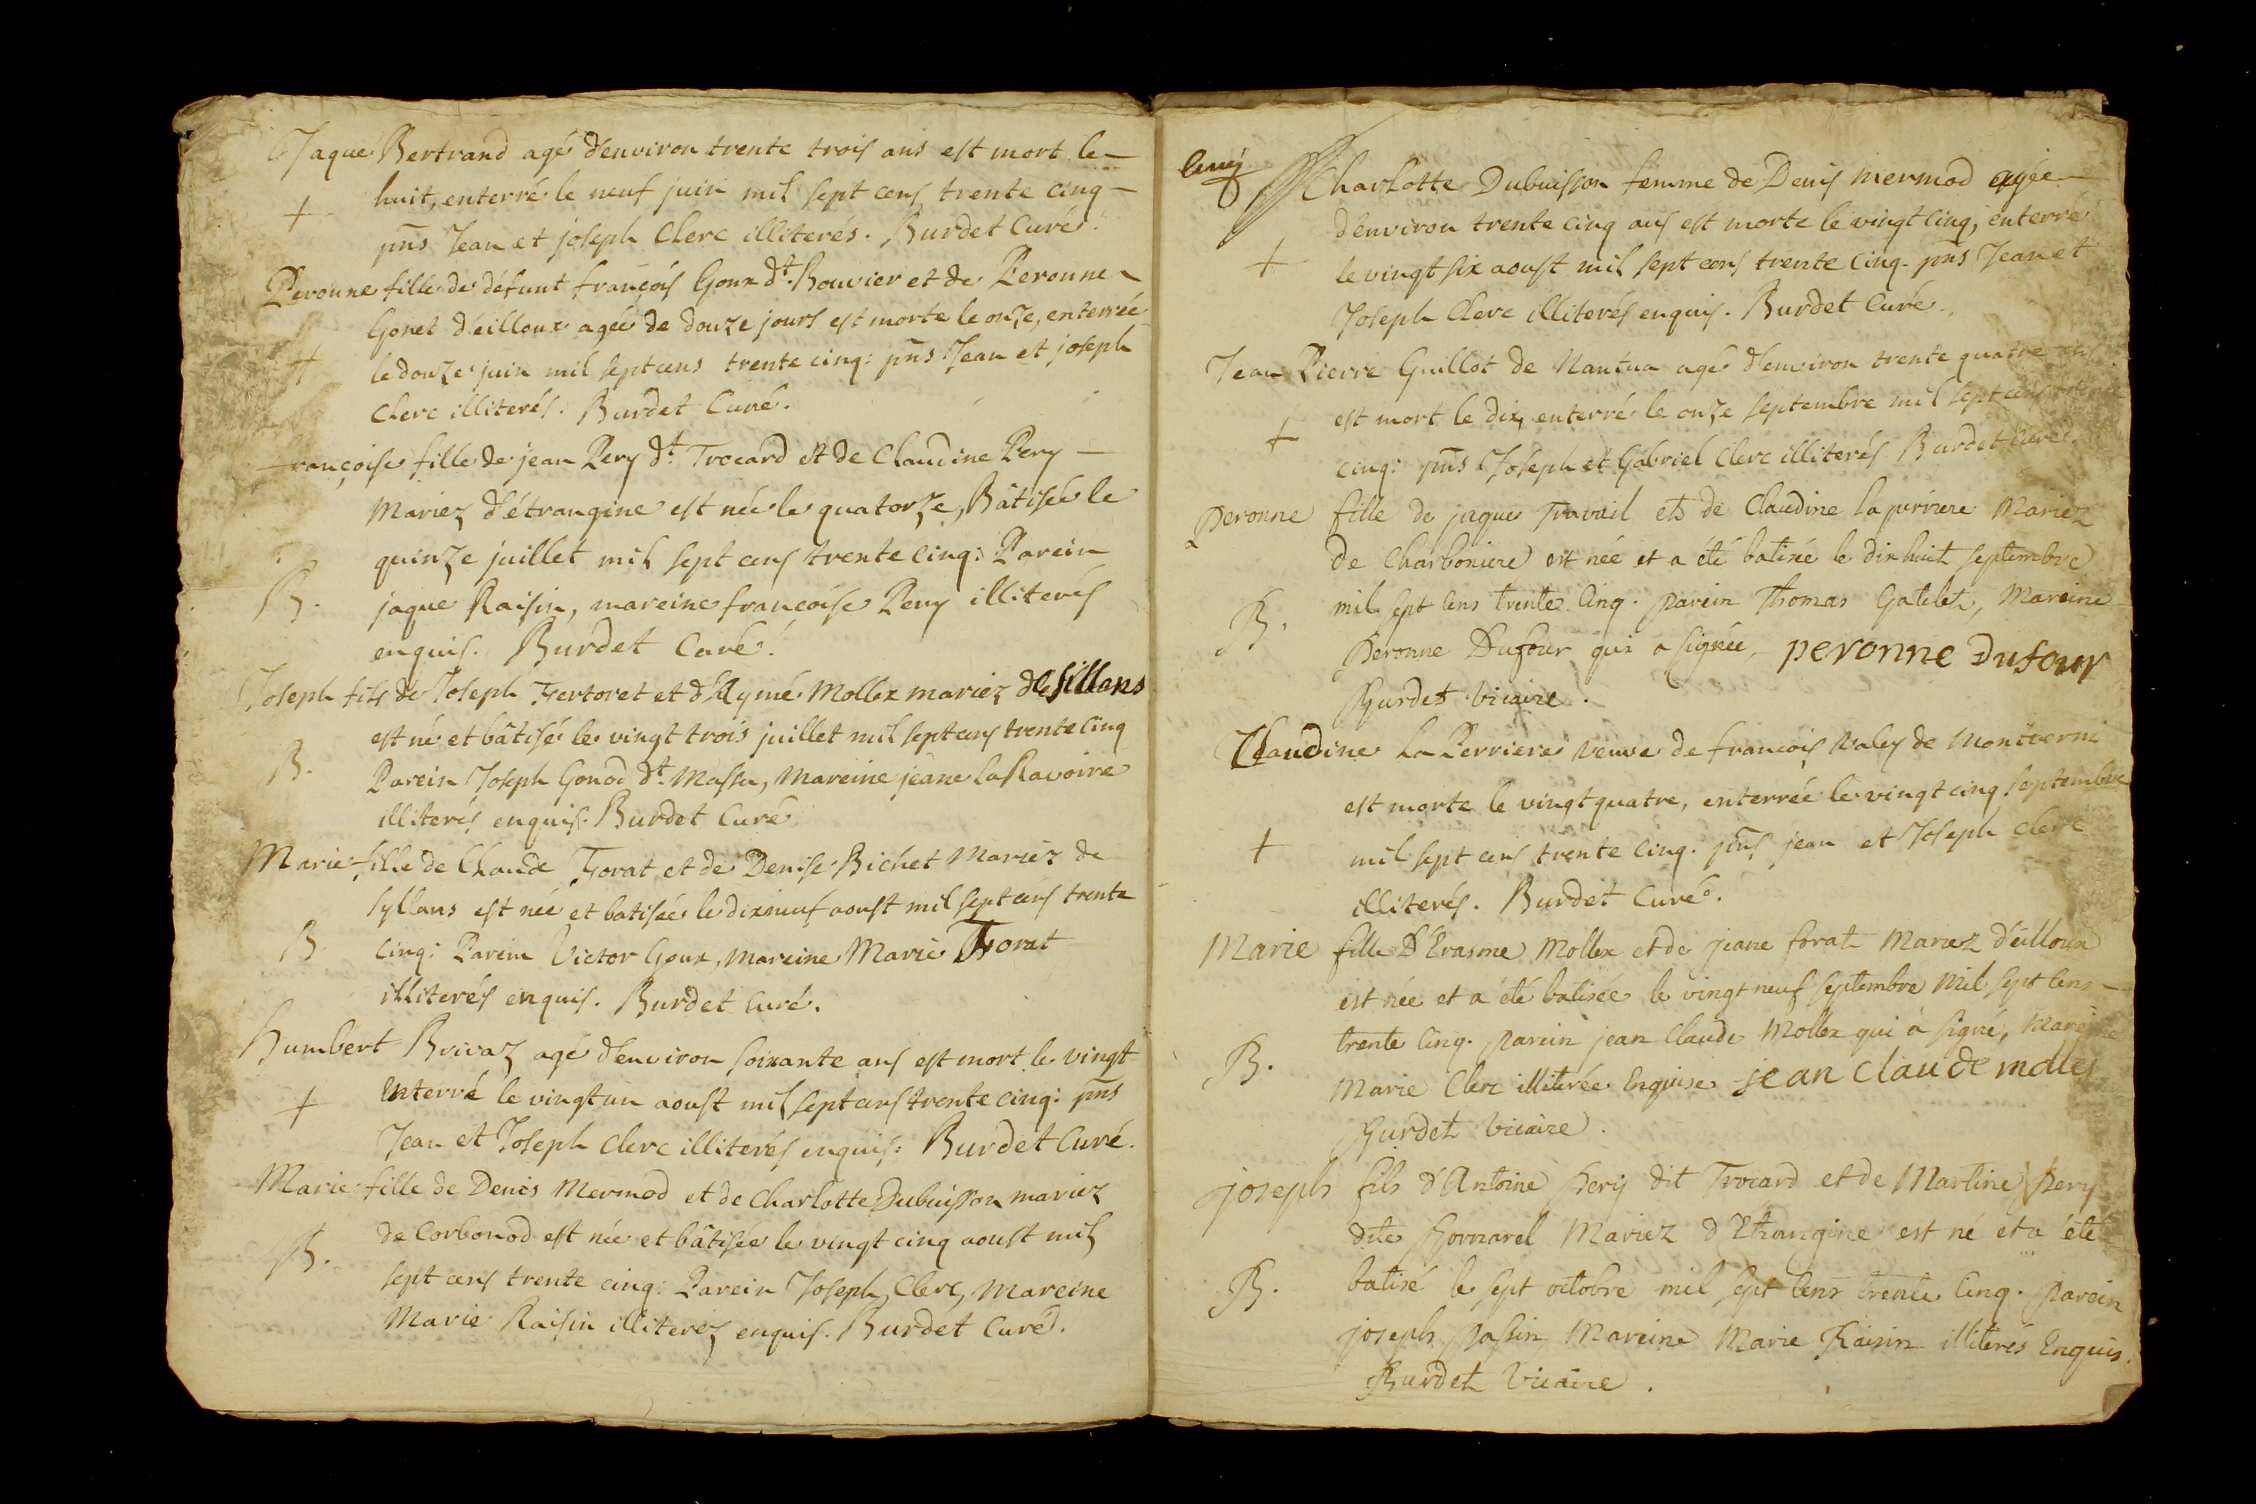 Jaque Bertrand agé d'environ trente trois ans est mort le
huit, enterré le neuf juin mil sept cens trente cinq
+
pns Jean et joseph Clerc illiterés. Burdet Curé.
Peronne fille de défunt françois Goux dt. Bouvier et de Peronne
Gonet d'eilloux agée de douze jours est morte le onze, enterrée
+
le douze juin mil sept cens trente cinq: pns Jean et joseph
Clerc illiterés. Burdet Curé.
françoise fille de jean Pery dt. Trocard et de Claudine Pery
Mariez d'étrangine est née le quatorze, Bâtisée le
quinze juillet mil sept cens trente cinq: Parein
B.
jaque Raisin, mareine françoise Pery illiterés
enquis. Burdet Curé.
Joseph fils de Joseph Fertoret et d'Aymé Mollex mariez de sillans
est né et bâtisé le vingt trois juillet mil sept cens trente cinq
B.
Parein Joseph Gonod dt. Massu, Mareine jeane la Ravoire
illiterés enquis. Burdet Curé
Marie fille de Claude Forat et de Denise Bichet Mariez de
syllans est née et batisée le dixneuf aoust mil sept cens trente
B.
cinq: Parein Victor Goux, mareine Marie Forat
illiterés enquis. Burdet Curé.
Humbert Brivaz agé d'environ soixante ans est mort le vingt
+
enterré le vingt un aoust mil sept cens trente cinq: pns
Jean et Joseph Clerc illiterés enquis: Burdet Curé.
Marie fille de Denis Mermod et de Charlotte Dubuisson mariez
de Corbonod est née et bâtisée le vingt cinq aoust mil
B.
sept cens trente cinq: Parein Joseph Clerc, Mareine
Marie Raisin illiterez enquis. Burdet Curé.
Charlotte Dubuisson femme de Denis Mermod agée
d'environ trente cinq ans est morte le vingt cinq, enterré
+
le vingt six aoust mil sept cens trente cinq. pns Jean et
Joseph Clerc illiterés enquis. Burdet Curé.
Jean Pierre Guillot de Nantua agé d'environ trente quatre ans
est mort le dix, enterré le onze septembre mil sept cens trente
+
cinq: pns Joseph et Gabriel Clerc illiterés Burdet Curé.
Peronne fille de jaque Travail et de Claudine la periere Mariez
de Charboniere est née et a été batisé le dixhuit septembre
B.
mil sept cens trente cinq. parein Thomas Gatelet, Mareine
Peronne Dufour qui a signée, peronne Dufour
Burdet vicaire.
Claudine La Perriere veuve de françois Valey de Montverni
est morte le vingt quatre, enterrée le vingt cinq septembre
+
mil sept cens trente cinq. pns jean et Joseph Clerc
illiterés. Burdet Curé.
Marie fille d'Erasme Mollex et de jeane forat Mariez d'eilloux
est née et a été batisée le vingt neuf septembre mil sept cens
trente cinq. parein jean Claude Mollex qui à signé, Mareine
B.
Marie Clerc illiterée Enquise jean claude moles
Burdet vicaire.
joseph fils d'Antoine Pery dit Trocard et de Martine Pery
dite Bornarel Mariez d'Etrangine est né et a été
B.
batisé le sept octobre mil sept cens trente cinq. parein
joseph passin, Mareine Marie Raisin illiterés Enquis.
Burdet vicaire.